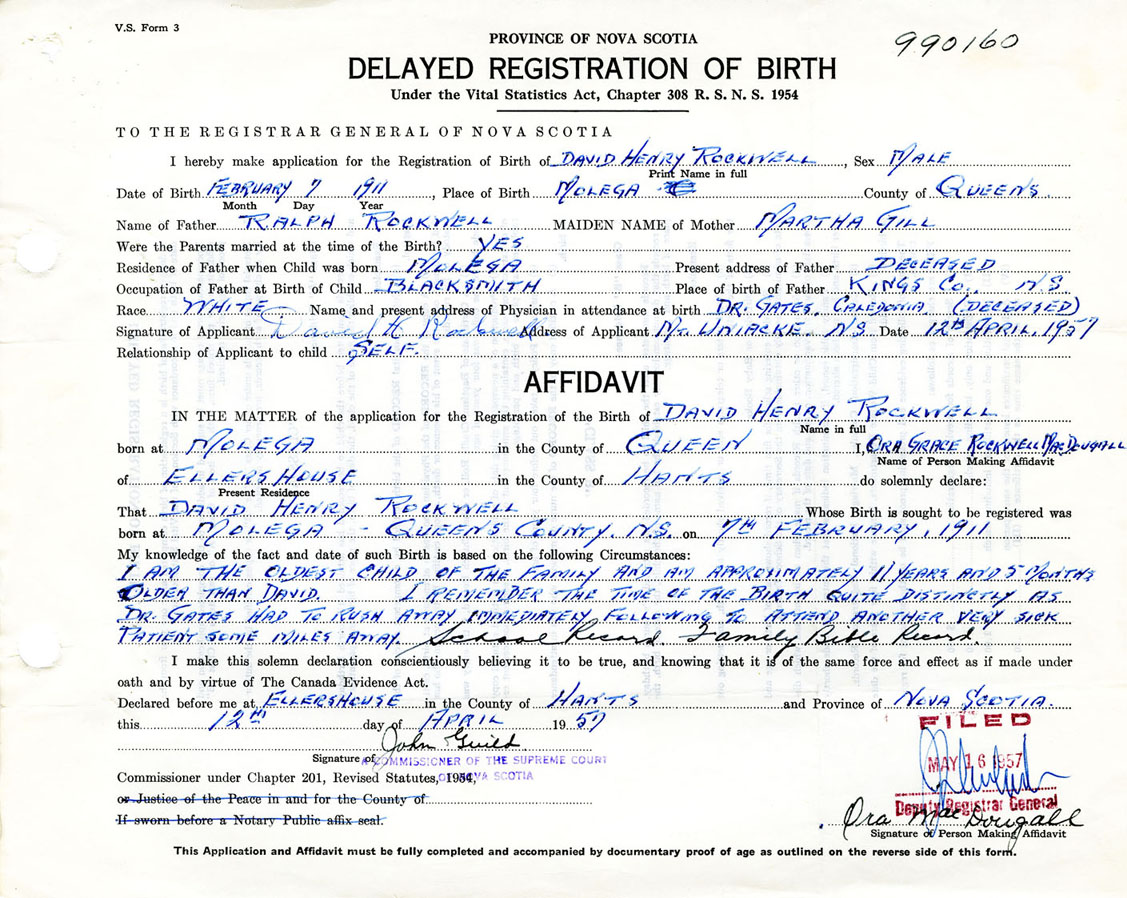 V.S. Form 3
990160
PROVINCE OF NOVA SCOTIA
DELAYED REGISTRATION OF BIRTH
Under the Vital Statistics Act, Chapter 308 R. S. N. S. 1954
TO THE REGISTRAR GENERAL OF NOVA SCOTIA
I hereby make application for the Registration of Birth of DAVID HENRY ROCKWELL, Sex MALE
Print Name in full
Date of Birth FEBRUARY 7 1911, Place of Birth MOLEGA County of QUEENS
Month Day Year
Name of Father RALPH ROCKWELL MAIDEN NAME of Mother MARTHA GILL
Were the Parents married at the time of the Birth? YES
Residence of Father when Child was born MOLEGA Present address of Father DECEASED
Occupation of Father at Birth of Child BLACKSMITH Place of birth of Father KINGS CO., N S
Race WHITE Name and present address of Physician in attendance at birth DR. GATES, CALEDONIA (DECEASED)
Signature of Applicant David H Rockwell Address of Applicant MT. UNIACKE. N.S. Date 12th APRIL. 1957
Relationship of Applicant to child SELF.
AFFIDAVIT
IN THE MATTER of the application for the Registration of the Birth of DAVID HENRY ROCKWELL
Name in full
born at MOLEGA in the County of QUEEN I, ORA GRACE ROCKWELL MACDOUGALL
Name of Person Making Affidavit
of ELLERSHOUSE in the County of HANTS do solemnly declare:
Present Residence
That DAVID HENRY ROCKWELL Whose Birth is sought to be registered was
born at MOLEGA - QUEENS COUNTY. N.S. on 7TH FEBRUARY, 1911
My knowledge of the fact and date of such Birth is based on the following Circumstances:
I AM THE OLDEST CHILD OF THE FAMILY AND AM APPROXIMATELY 11 YEARS AND 5 MONTHS
OLDER THAN DAVID. I REMEMBER THE TIME OF THE BIRTH QUITE DISTINCTLY AS
DR. GATES HAD TO RUSH AWAY IMMEDIATELY FOLLOWING TO ATTEND ANOTHER VERY SICK
PATIENT SOME MILES AWAY. School Record Family Bible Record
I make this solemn declaration conscientiously believing it to be true, and knowing that it is of the same force and effect as if made under
oath and by virtue of The Canada Evidence Act.
Declared before me at ELLERSHOUSE in the County of HANTS and Province of NOVA SCOTIA.
this 12th day of APRIL 1957
FILED
MAY 16 1957
Deputy Registrar General
John Guild
Signature of
A COMMISSIONER OF THE SUPREME COURT
OF NOVA SCOTIA
Commissioner under Chapter 201, Revised Statutes, 1954,
or Justice of the Peace in and for the County of
If sworn before a Notary Public affix seal.
Ora MacDougall
Signature of Person Making Affidavit
This Application and Affidavit must be fully completed and accompanied by documentary proof of age as outlined on the reverse side of this form.